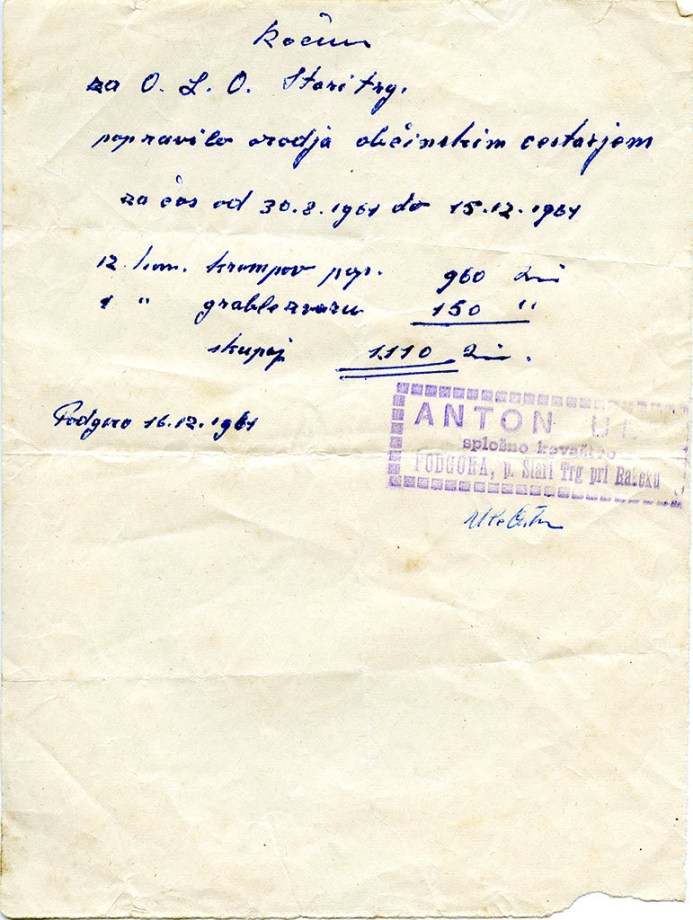 Račun
za O. L. O. Stari trg.
popravilo orodja občinskim cestarjem
za čas od 30.8.1961 do 15.12.1961
12 kom. krampov pop. 960 din
1 " grable zvaru 150 "
skupaj 1110 Din.
Podgora 16.12.1961
ANTON UL
splošno kovaštvo
PODGORA, p. Stari Trg pri Rakeku